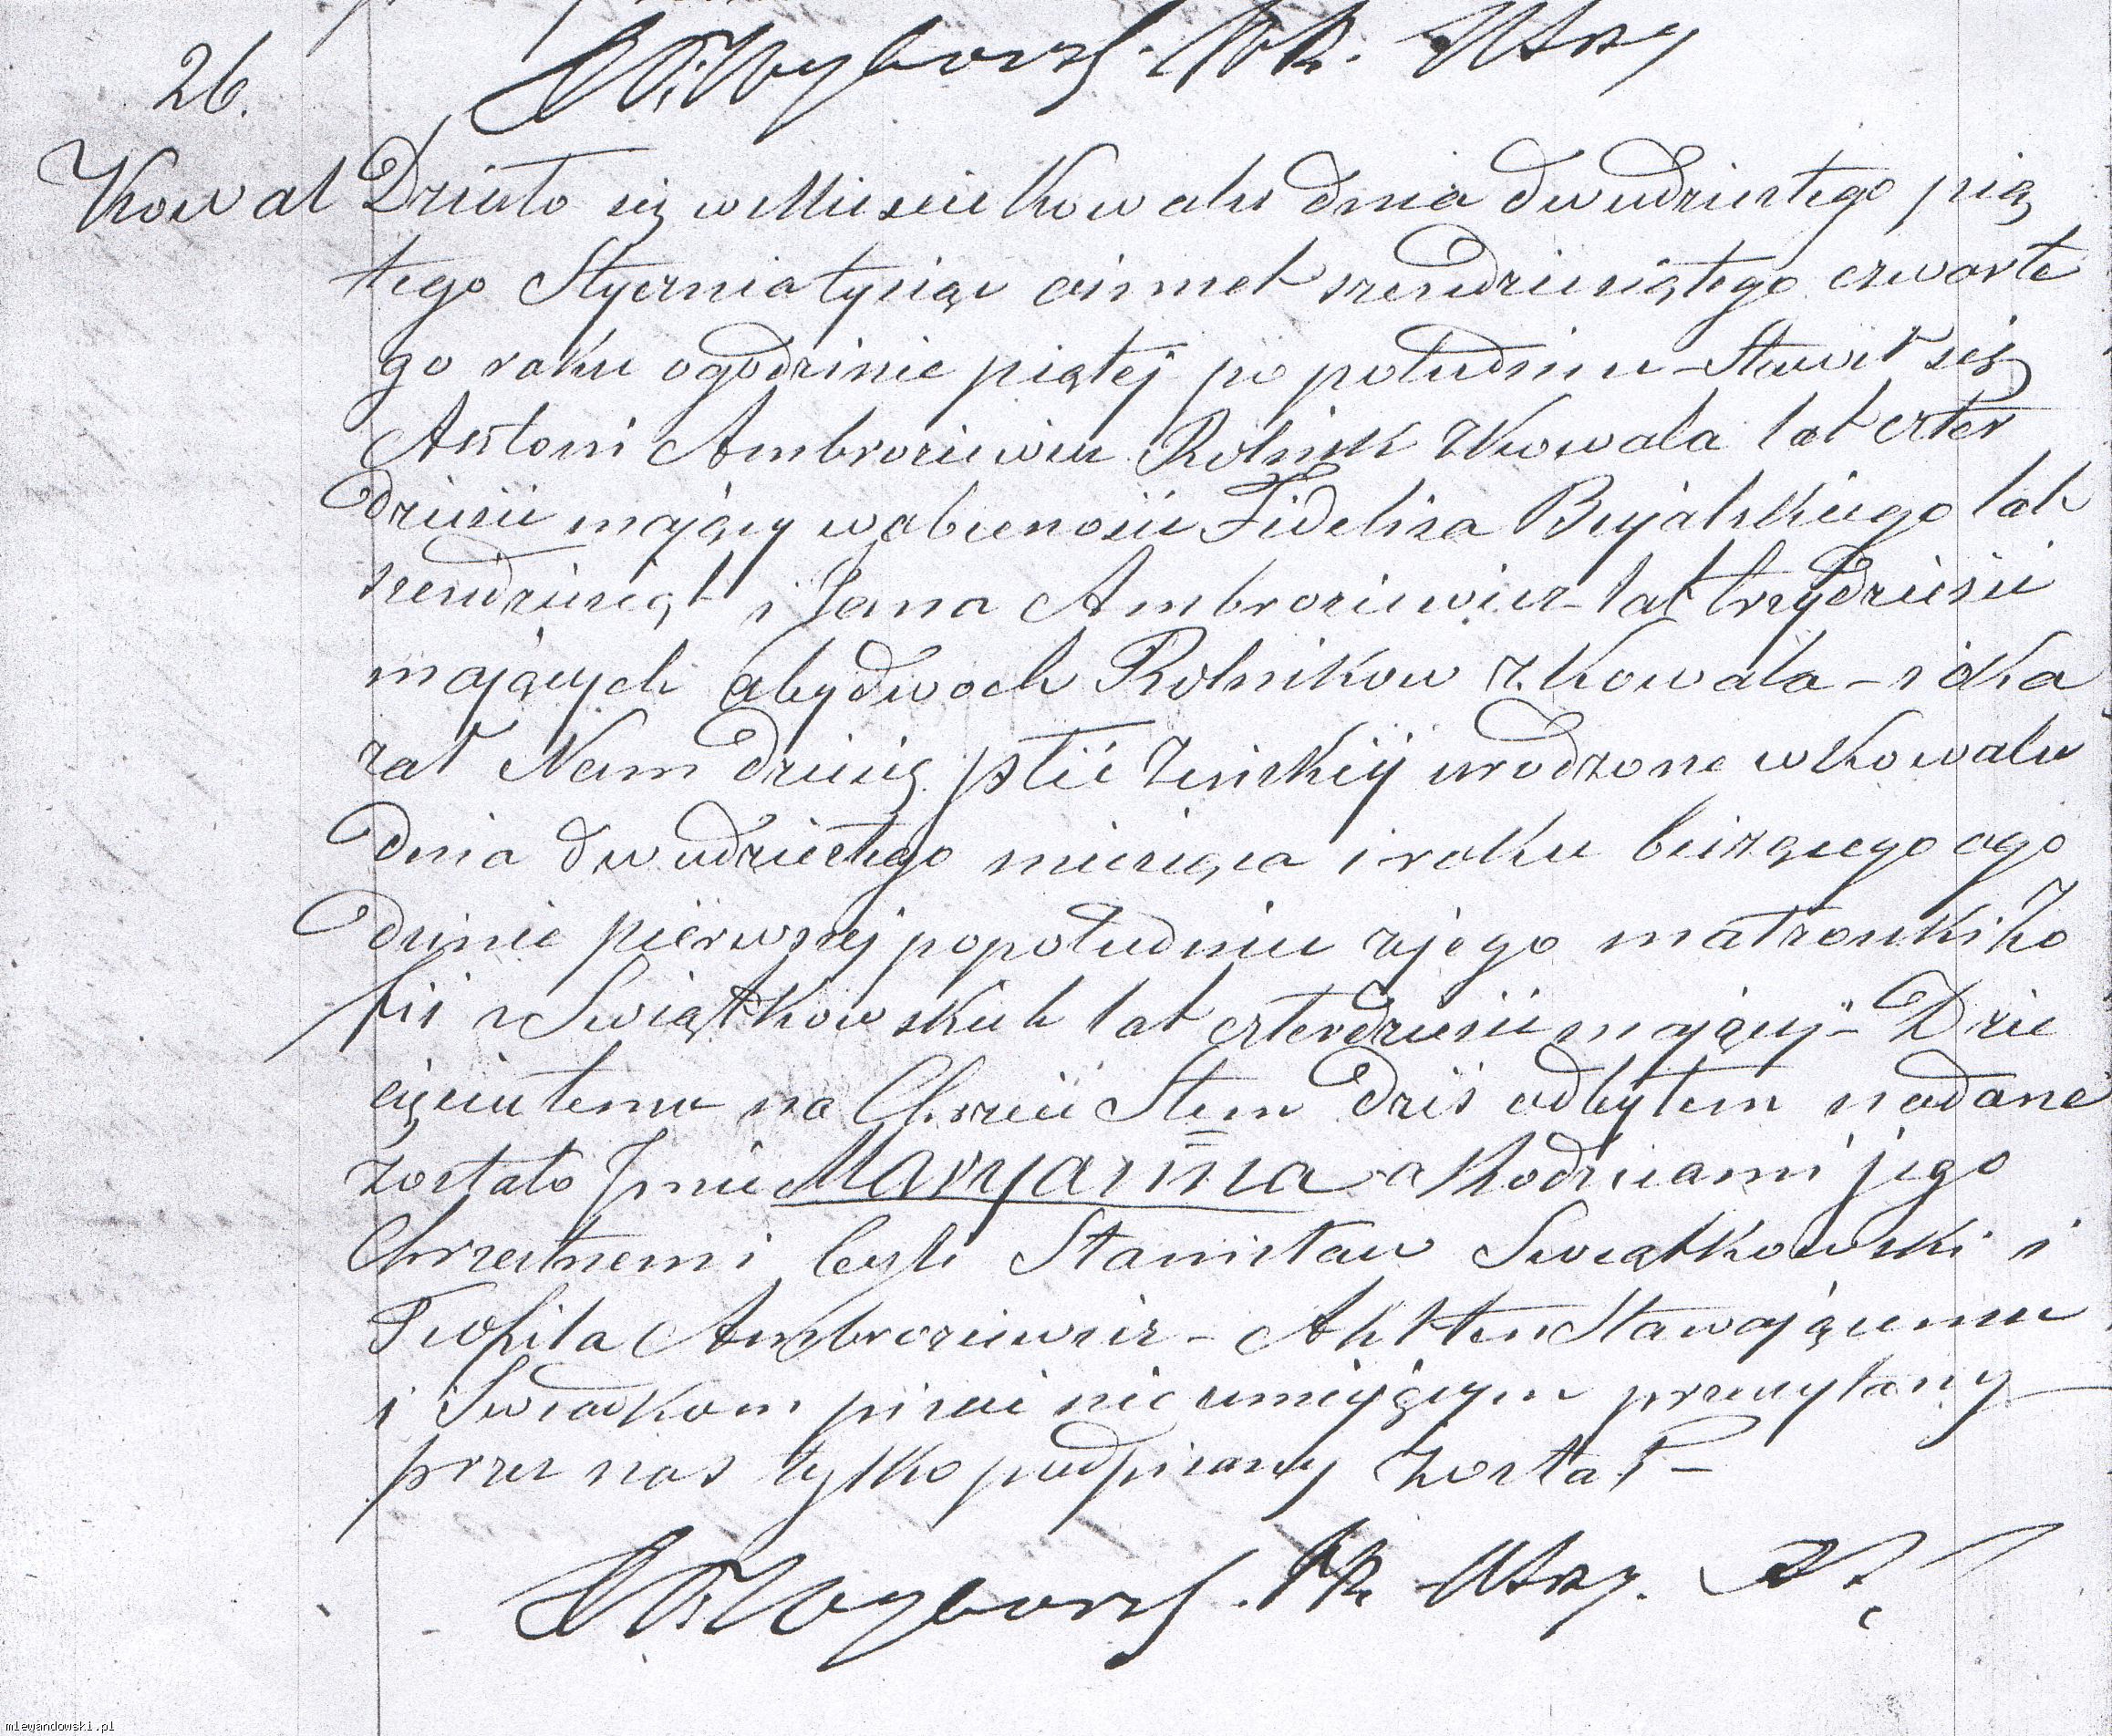 26.
Kowal
Działo się w Mieście Kowalu dnia dwudziestego pią
tego Stycznia tysiąc ośmset sześćdziesiątego czwarte
go roku o godzinie piątej po południu – Stawił się
Antoni Ambroziewicz Rolnik z Kowala lat czter
dzieści mający w obecności Fidelisa Bujalskiego lat
sześćdziesiąt i Jana Ambroziewicz – lat trzydzieści
mających obydwoch Rolnikow z Kowala – i oka
zał Nam dziecię płci żeńskiéj urodzone w Kowalu
dnia dwudziestego miesiąca i roku bieżącego o go
dzinie pierwszej po południu z jego małżonki Zo
fii z Swiątkowskich lat czterdzieści mającéj – Dzie
cięciu temu na Chrzcie Stem dziś odbytem nadane
zostało Jmie Maryanna a Rodzicami jego
Chrzestnemi byli Stanisław Swiątkowski i
Teofila Ambroziewicz – Akt ten Stawającemu
i Swiadkom pisać nie umiejącym przeczytany
przez nas tylko podpisany został –
mlewandowski.pl